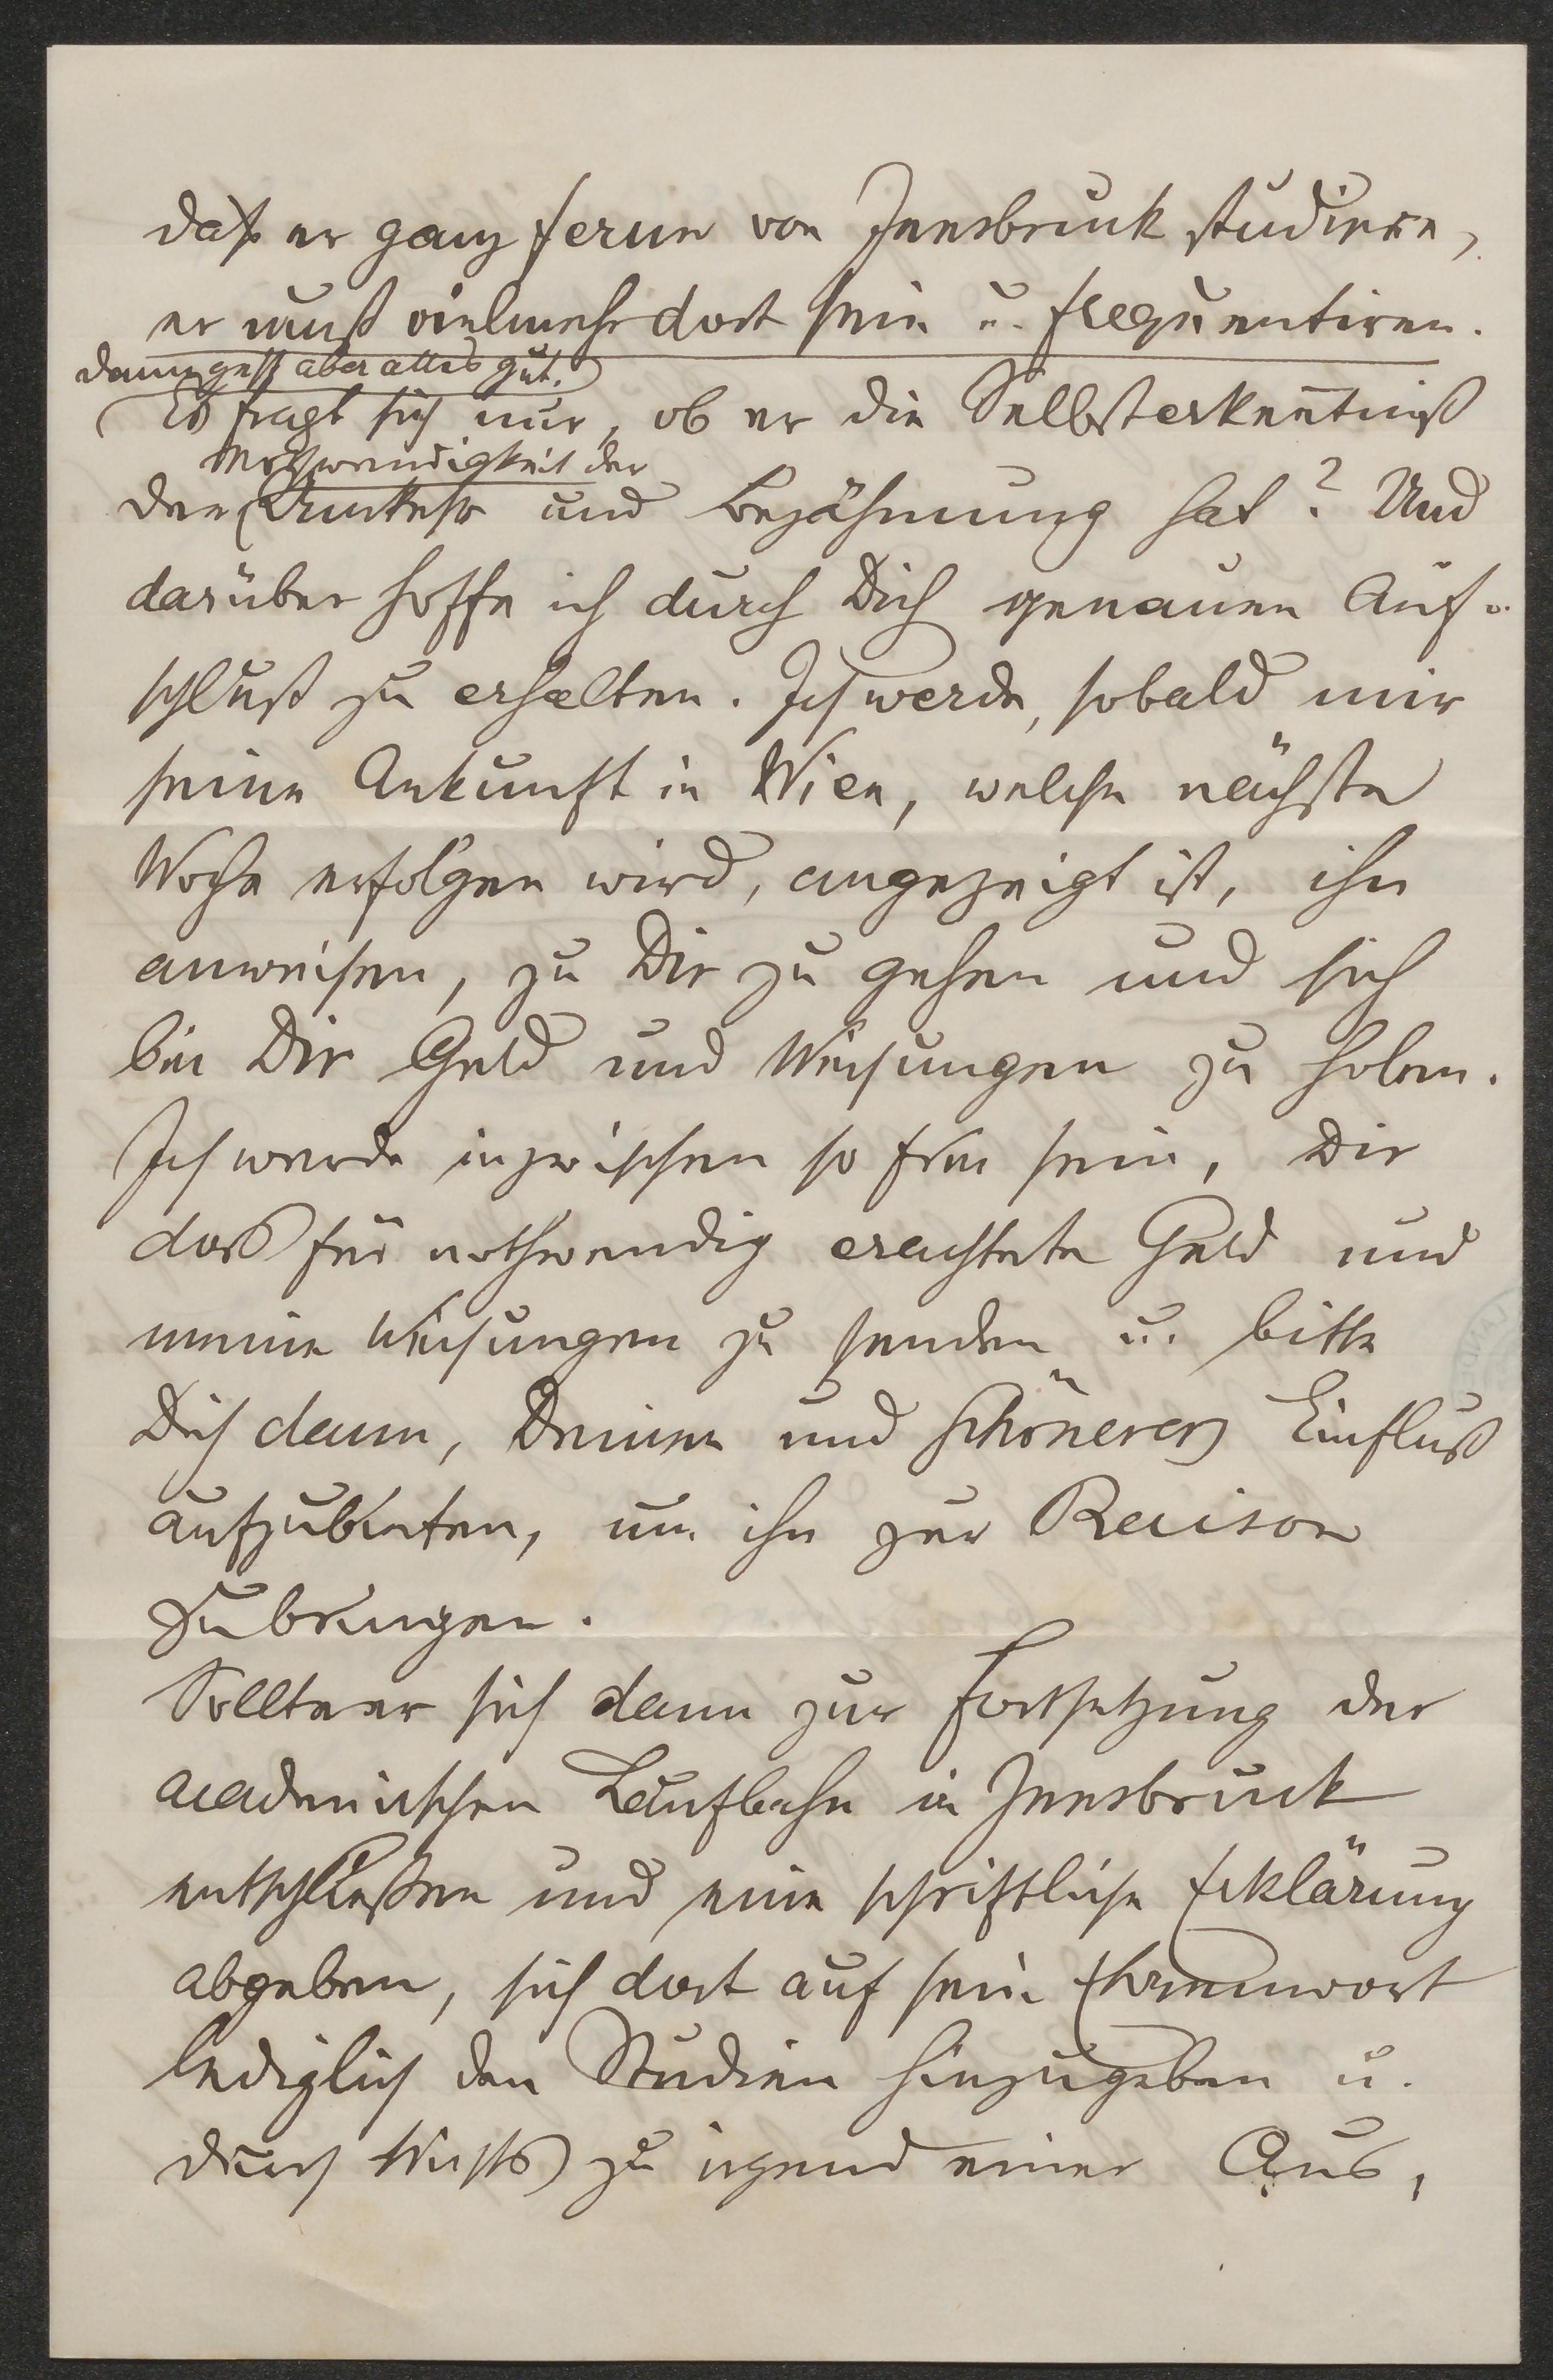 daß er ganz ferne von Innsbruck studiere,
er muß vielmehr dort sein u. frequentiren.
Dann geht aber alles gut.
Es fragt sich nur, ob er die Selbsterkenntniß
Nothwendigkeit der
der Umkehr und Bezähmung hat? Und
darüber hoffe ich durch Dich genauen Auf-
schluß zu erhalten. Ich werde, sobald mir
seine Ankunft in Wien, welche nächste
Woche erfolgen wird, angezeigt ist, ihn
anweisen, zu Dir zu gehen und sich
bei Dir Geld und Weisungen zu holen.
Ich werde inzwischen so frei sein, Dir
das für nothwendig erachtete Geld und
meine Weisungen zu senden u. bitte
Dich dann, Deinen und Schönerers Einfluß
aufzubieten, um ihn zur Raison
zu bringen.
Sollte er sich dann zur Fortsetzung der
academischen Laufbahn in Innsbruck
entschließen und eine schriftliche Erklärung
abgeben, sich dort auf sein Ehrenwort
lediglich den Studien hinzugeben u.
durch Nichts zu irgend einer Aus-